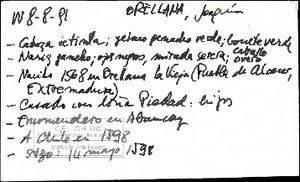 W 8-8-81 ORELLANA, Joaquín
- Cabeza retinta; penacho verde; bonete verde
- Nariz gancho; ojos negros, mirada serena; caballo overo
- Nacido 1568 en Orellana la Vieja (Puebla de Alcocer,
Extremadura)
- Casado con doña Piedad: hijos
- Encomendero en Abancay
- A Chile en 1598
- 14 mayo 1598